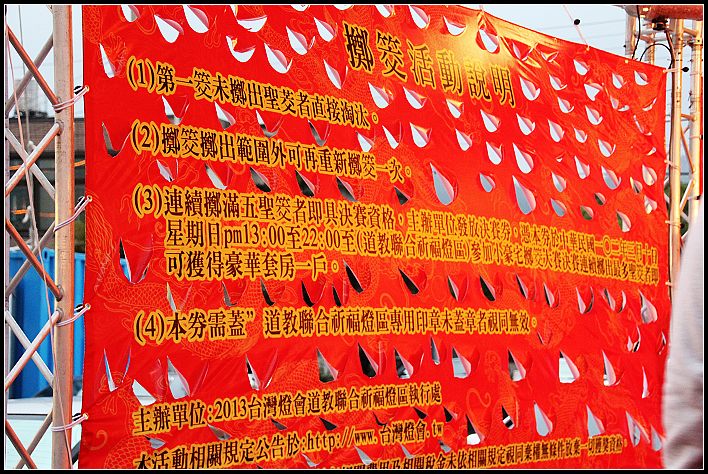 擲筊活動說明
(1)第一筊未擲出聖茭者直接淘汰。
(2)擲筊擲出範圍外可再重新擲筊一次。
(3)連續擲滿五聖筊者即具決賽資格,主辦單位發放決賽券,憑本券於中華民國一〇二年三月十日
星期日pm13:00至22:00至(道教聯合祈福燈區)參加小豪宅擲筊決賽決賽連續擲出最多聖筊者即
可獲得豪華套房一戶。
(4)本券需蓋"道教聯合祈福燈區專用印章未蓋章者視同無效。
主辦單位:2013台灣燈會道教聯合祈福燈區執行處
本活動相關規定公告於:http://www.台灣燈會.tw
及相關稅金未依相關規定視同棄權無條件放棄一切獲獎資格